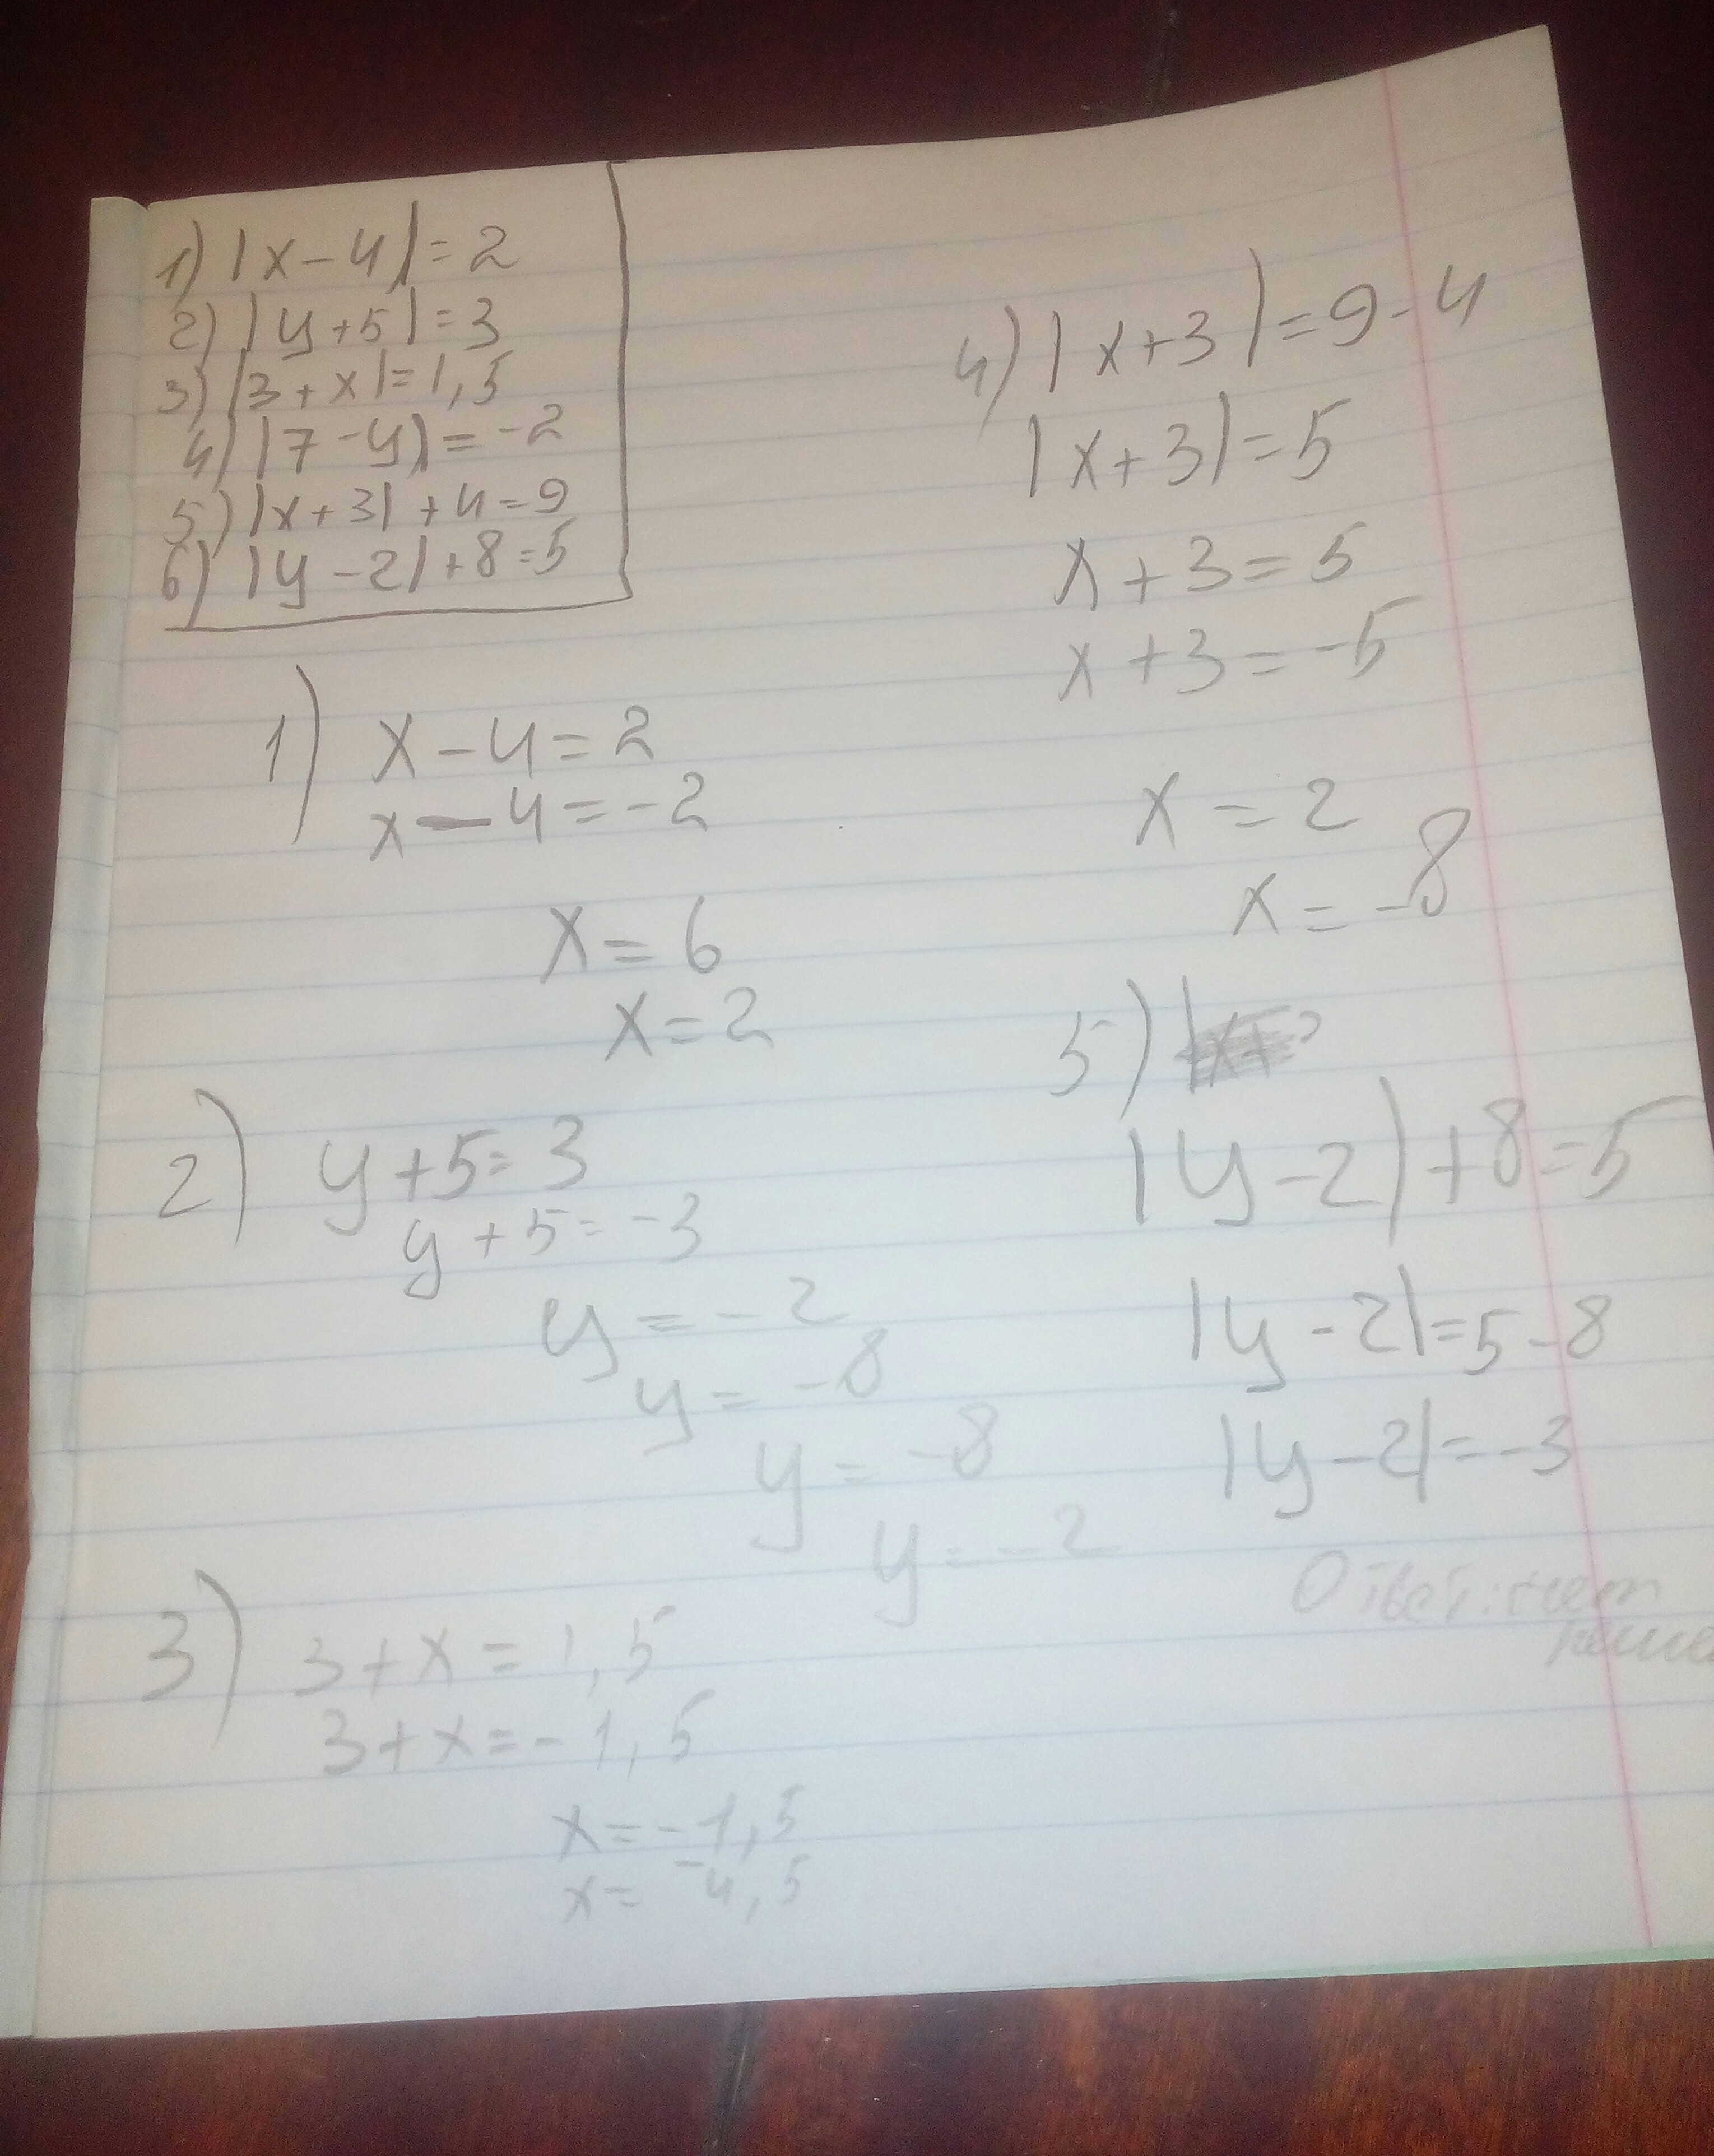 1) |x-4|=2
2) |y+5|=3
3) |3+x|=1,5
4) |7-y|=-2
5) |x+3|+4=9
6) |y-2|+8=5
1) x-4=2
x-4=-2
x=6
x=2
2) y+5=3
y+5=-3
y=-2
y=-8
y=-8
y=-2
3) 3+x=1,5
3+x=-1,5
x=-1,5
x=-4,5
4) |x+3|=9-4
|x+3|=5
x+3=5
x+3=-5
x=2
x=-8
5)
|y-2|+8=5
|y-2|=5-8
|y-2|=-3
Ответ: нет
реше